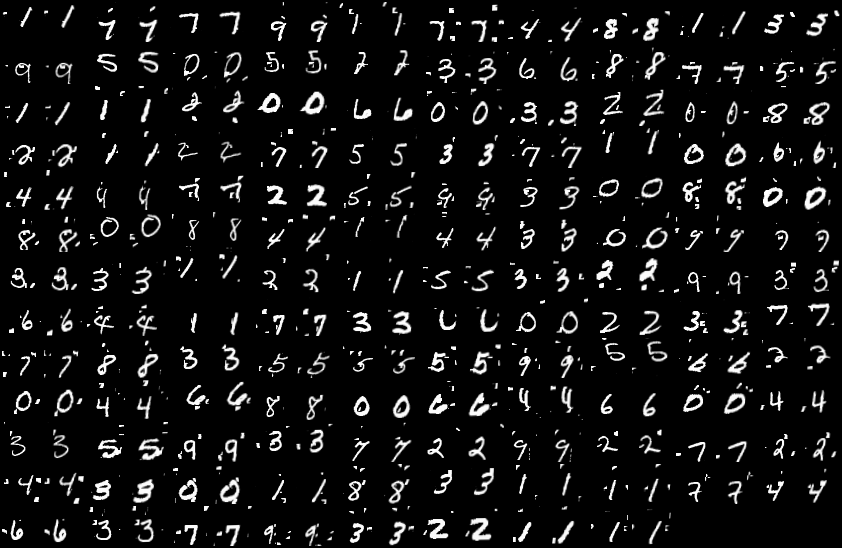 1 1 7 7 7 7 9 9 1 1 7 7 4 4 8 8 1 1 3 3
9 9 5 5 0 0 5 5 2 2 3 3 6 6 8 8 7 7 5 5
1 1 1 1 2 2 0 0 6 6 0 0 3 3 2 2 0 0 8 8
2 2 1 1 2 2 7 7 5 5 3 3 7 7 1 1 0 0 6 6
4 4 9 9 7 7 2 2 5 5 9 9 3 3 0 0 8 8 0 0
8 8 0 0 8 8 4 4 1 1 4 4 3 3 0 0 9 9 7 7
3 3 3 3 1 1 2 2 1 1 5 5 3 3 2 2 9 9 3 3
6 6 4 4 1 1 7 7 3 3 0 0 0 0 2 2 3 3 7 7
7 7 8 8 3 3 5 5 5 5 5 5 9 9 5 5 6 6 2 2
0 0 4 4 6 6 8 8 0 0 6 6 4 4 6 6 0 0 4 4
3 3 5 5 9 9 3 3 7 7 2 2 9 9 2 2 7 7 2 2
4 4 3 3 0 0 1 1 8 8 3 3 1 1 1 1 7 7 4 4
6 6 3 3 7 7 9 9 3 3 2 2 1 1 1 1